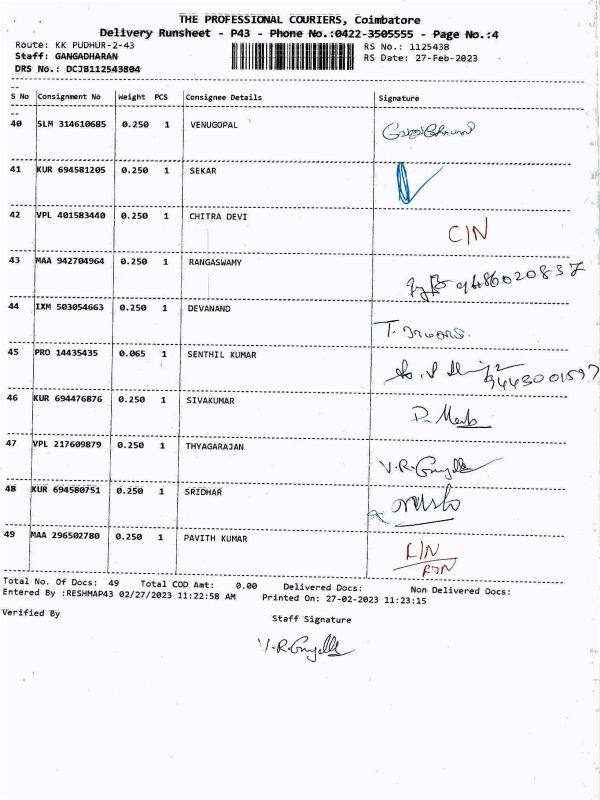 THE PROFESSIONAL COURIERS, Coimbatore
Delivery Runsheet - P43 - Phone No.:0422-3505555 - Page No.:4
Route: KK PUDHUR-2-43 RS No.: 1125438
Staff: GANGADHARAN RS Date: 27-Feb-2023
DRS No.: DCJB112543804
S No Consignment No Weight PCS Consignee Details Signature
40 SLM 314610685 0.250 1 VENUGOPAL
41 KUR 694581205 0.250 1 SEKAR
42 VPL 401583440 0.250 1 CHITRA DEVI C/N
43 MAA 942704964 0.250 1 RANGASWAMY 9486020837
44 IXM 503054663 0.250 1 DEVANAND
45 PRO 14435435 0.065 1 SENTHIL KUMAR 9443001597
46 KUR 694476876 0.250 1 SIVAKUMAR
47 VPL 217609879 0.250 1 THYAGARAJAN
48 KUR 694580751 0.250 1 SRIDHAR
49 MAA 296502780 0.250 1 PAVITH KUMAR
Total No. Of Docs: 49 Total COD Amt: 0.00 Delivered Docs: Non Delivered Docs:
Entered By :RESHMAP43 02/27/2023 11:22:58 AM Printed On: 27-02-2023 11:23:15
Verified By Staff Signature